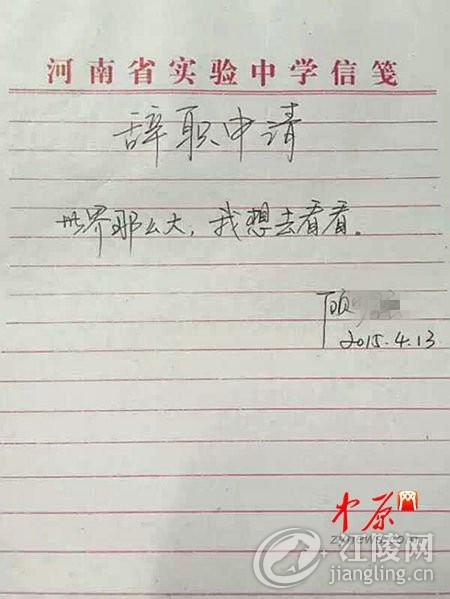 河南省实验中学信笺
辞职申请
世界那么大，我想去看看。
顾
2015.4.13
中原网
zynews.com
江陵网
jiangling.cn